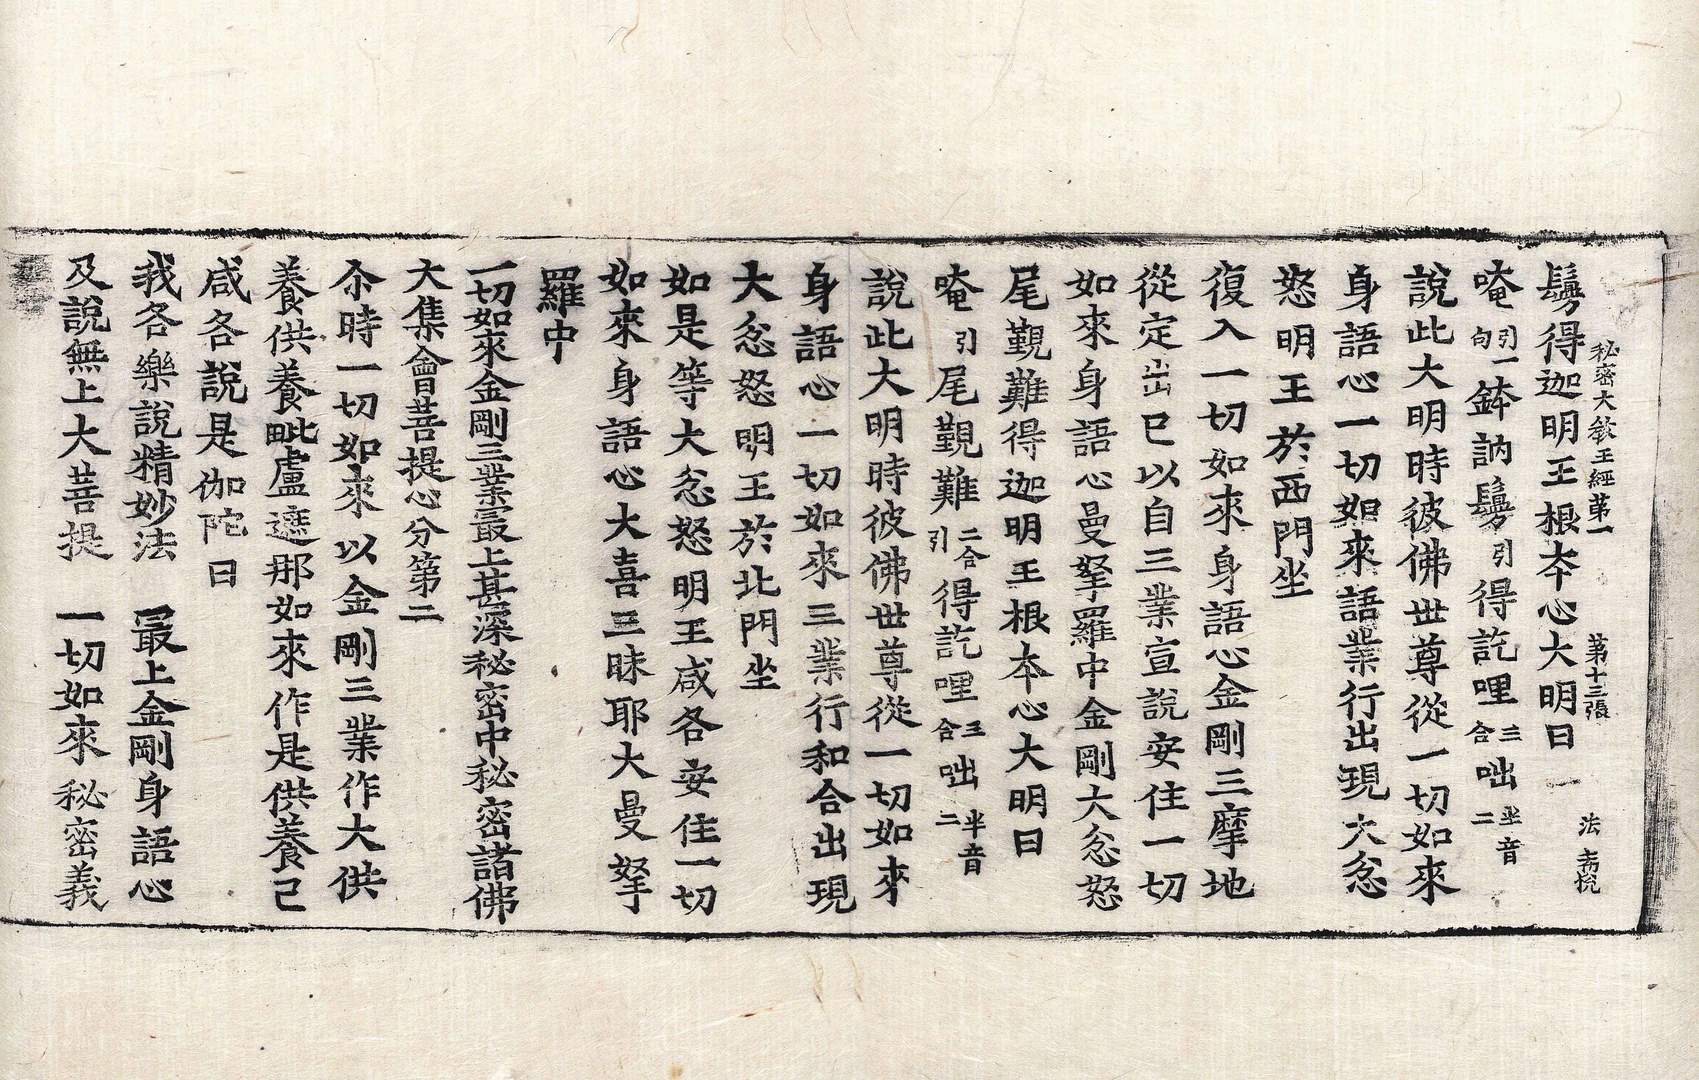 秘密大教王經第一 第十三張 法
鬘得迦明王根本心大明曰 一
唵引一句鉢訥鬘引得訖哩三合咄半音二
說此大明時彼佛世尊從一切如來
身語心一切如來語業行出現大忿
怒明王於西門坐
復入一切如來身語心金剛三摩地
從定出已以自三業宣說安住一切
如來身語心曼拏羅中金剛大忿怒
尾覲難得迦明王根本心大明曰
唵引尾覲難二合引得訖哩三合咄半音二
說此大明時彼佛世尊從一切如來
身語心一切如來三業行和合出現
大忿怒明王於北門坐
如是等大忿怒明王咸各安住一切
如來身語心大喜三昧耶大曼拏
羅中
一切如來金剛三業最上甚深秘密中秘密諸佛
大集會菩提心分第二
尒時一切如來以金剛三業作大供
養供養毗盧遮那如來作是供養已
咸各說是伽陀曰
我各樂說精妙法 最上金剛身語心
及說無上大菩提 一切如來秘密義